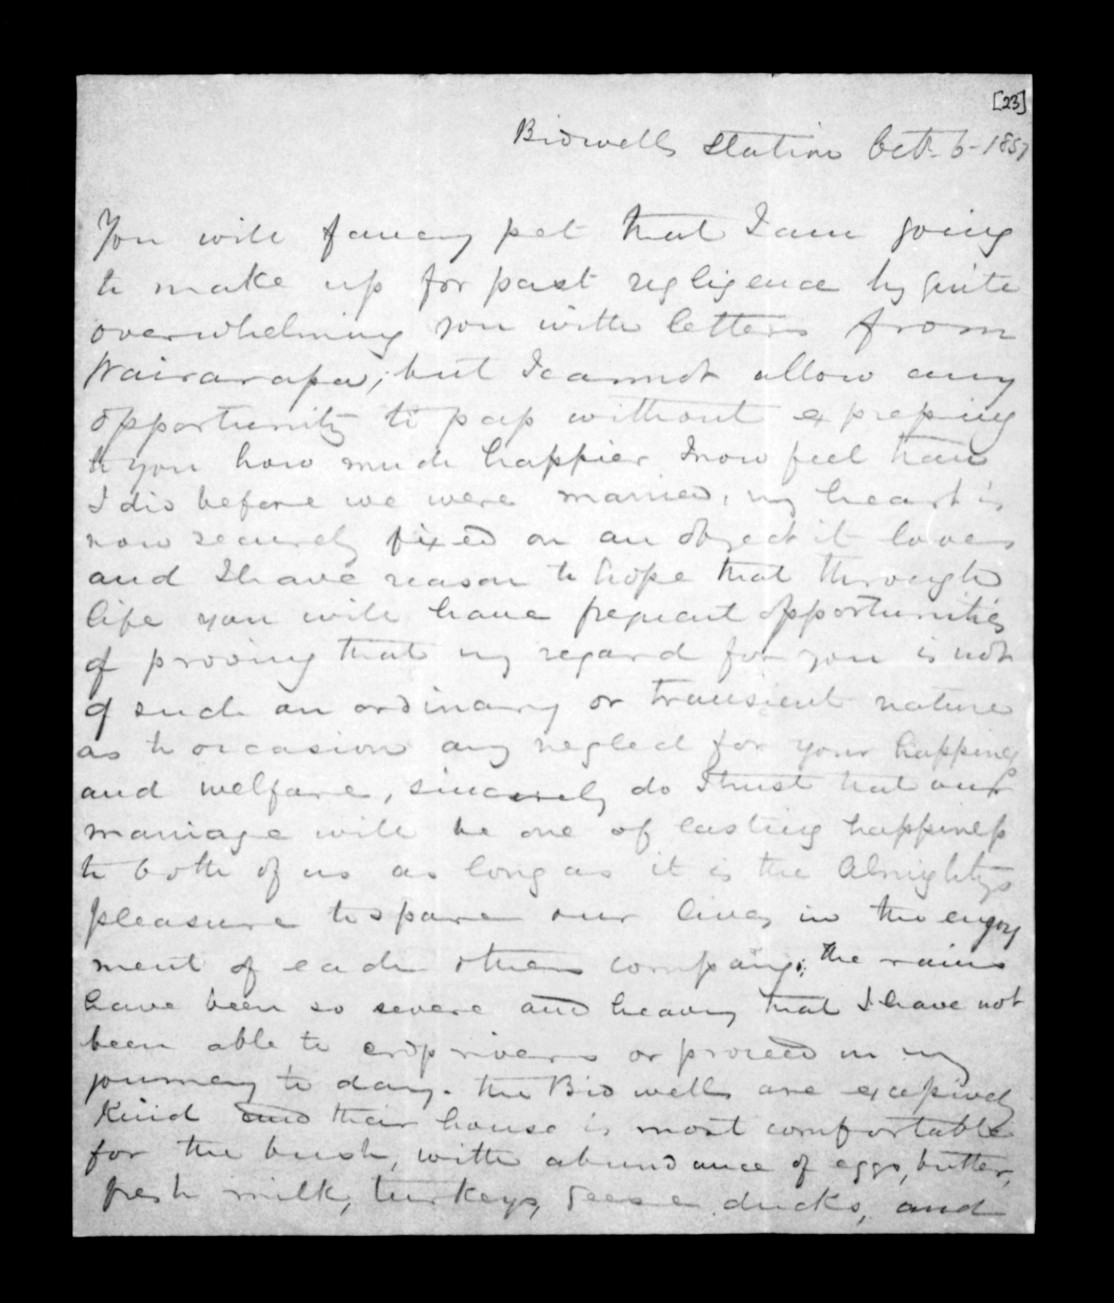 [23]
Bidwells Station Oct. 6-1851
You will fancy pet that I am going
to make up for past negligence by quite
overwhelming you with letters from
Wairarapa; but I cannot allow any
opportunity to pass without expressing
to you how much happier I now feel than
I did before we were married, my heart is
now securely fixed on an object it loves
and I have reason to hope that through
life you will have frequent opportunities
of proving that my regard for you is not
of such an ordinary or transient nature
as to occasion any neglect for your happiness
and welfare, sincerely do I trust that our
marriage will be one of lasting happiness
to both of us as long as it is the Almightys
pleasure to spare our lives in the enjoy
ment of each others company; the rains
have been so severe and heavy that I have not
been able to cross rivers or proceed on my
journey to day. the Bidwells are excessively
Kind and their house is most comfortable
for the bush, with abundance of eggs, butter,
fresh milk, turkeys, Geese ducks, and